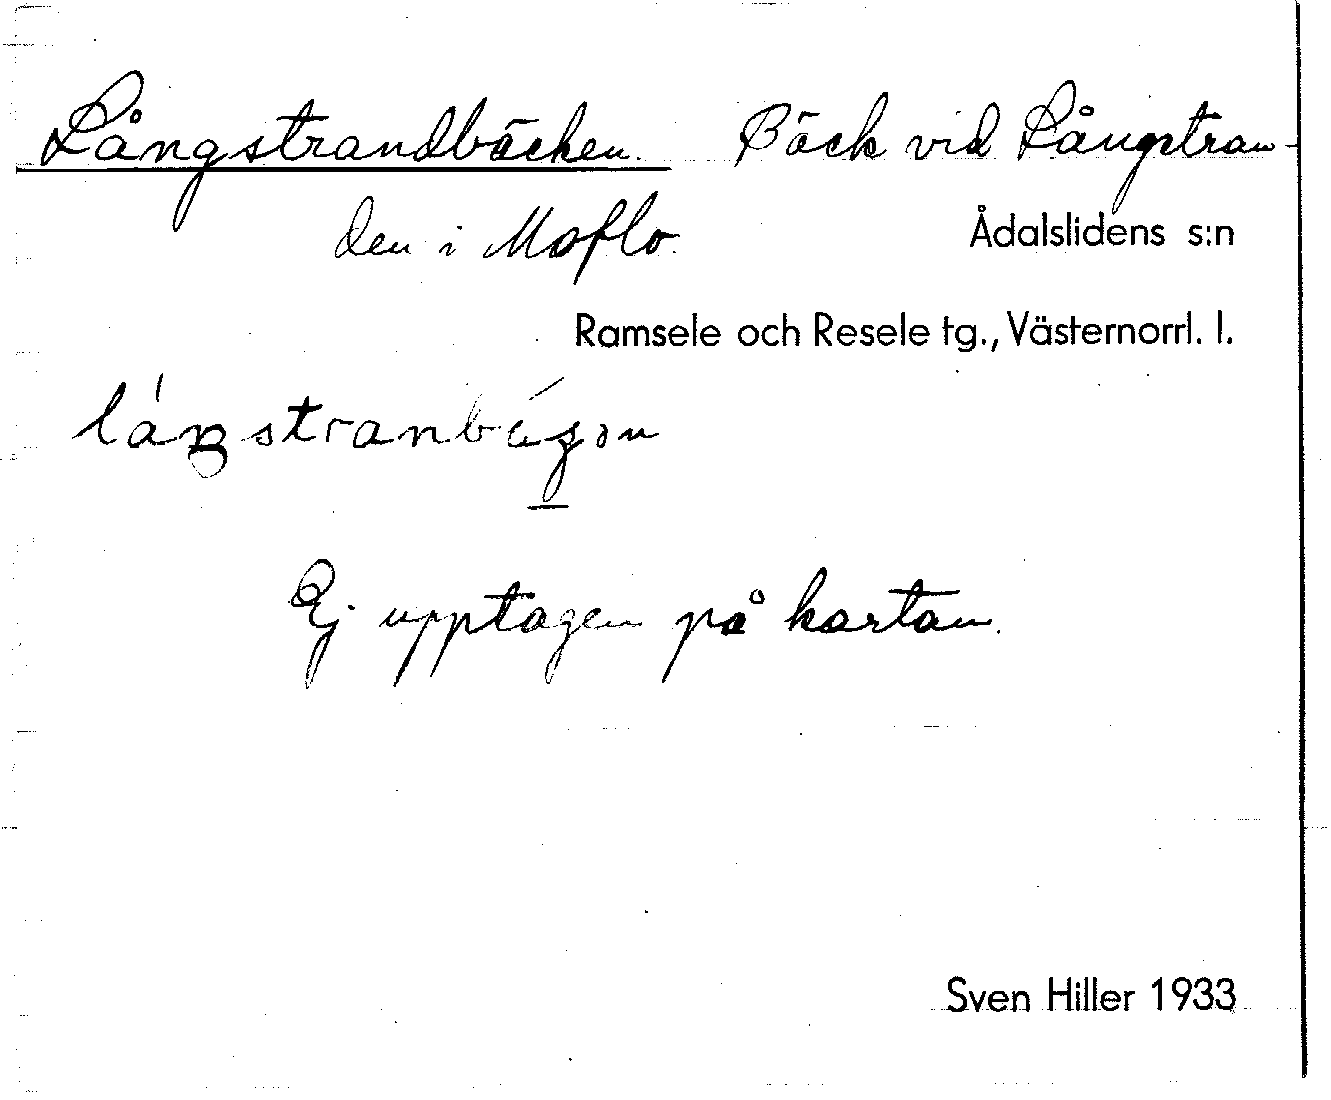 Långstrandbäcken. Bäck vid Långstran-
den i Moflo.
Ådalslidens s:n
Ramsele och Resele tg., Västernorrl. l.
Ej upptagen på kartan.
Sven Hiller 1933